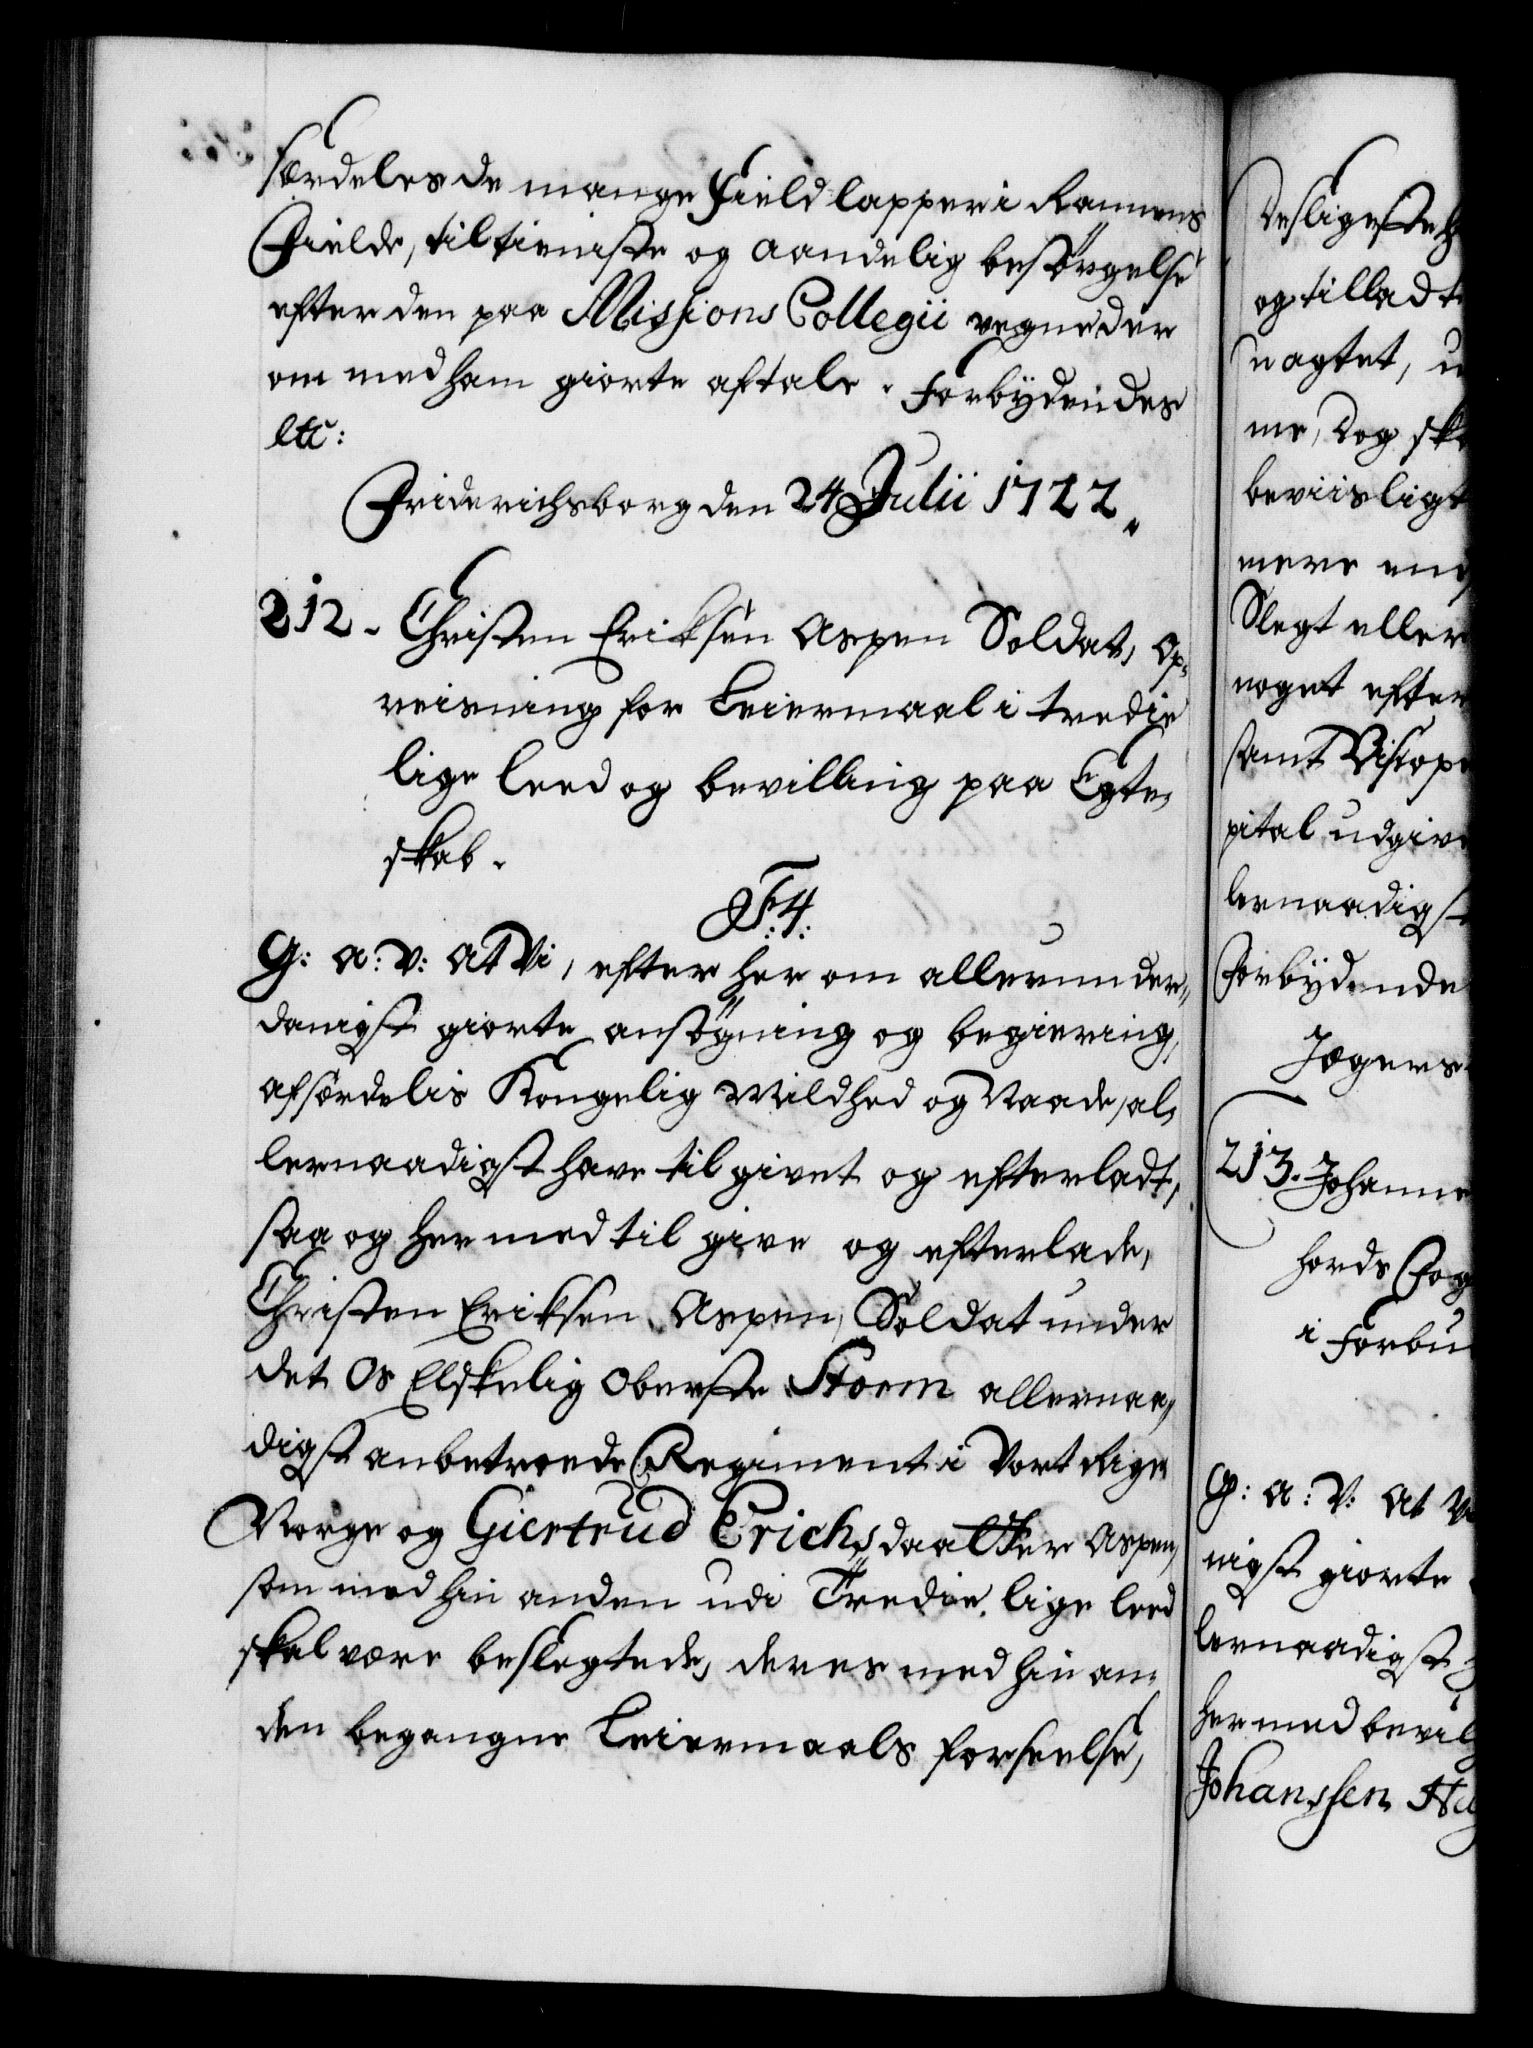 særdeles de mange Field lapper i Ranens
Fielde, til tieniste og aandelig besørgelse
efter den paa Missions Collegii vegne der
om med ham giorte aftale. Forbydendes
etc:
Friderichsborg den 24 Julii 1722.
212. Christen Eriksen Aspen Soldat, Op-
reisning for Leiermaal i tredie
lige leed og bevilling paa Egte-
skab.
F: 4:
G: A: V: At Vi, efter her om allerunder-
danigst giorte ansøgning og begiering,
af særdelis Kongelig Mildhed og Naade, al-
lernaadigst have tilgivet og efterladt,
saa og her med til give og efterlade,
Christen Eriksen Aspen, Soldat under
det Os Elskelig Oberste Storm allernaa-
digst anbetroede Regiment i Vort Rige
Norge og Giertrud Erichsdaatter Aspen,
som med hin anden udi Tredie lige leed
skal være beslegtede, deres med hin an-
den begangne Leiermaals forseelse,
Desligeste
og tilladt
uagtet,
me, Dog
beviisligt
mere end
Slegt eller
noget efter
samt
pital udgive
lernaadigst
Forbydende
Jægers
213. Johanne
hords Fog
i Forbu
G: A: V: At V
nigst giorte
lernaadigst
her med bevil
Johanssen